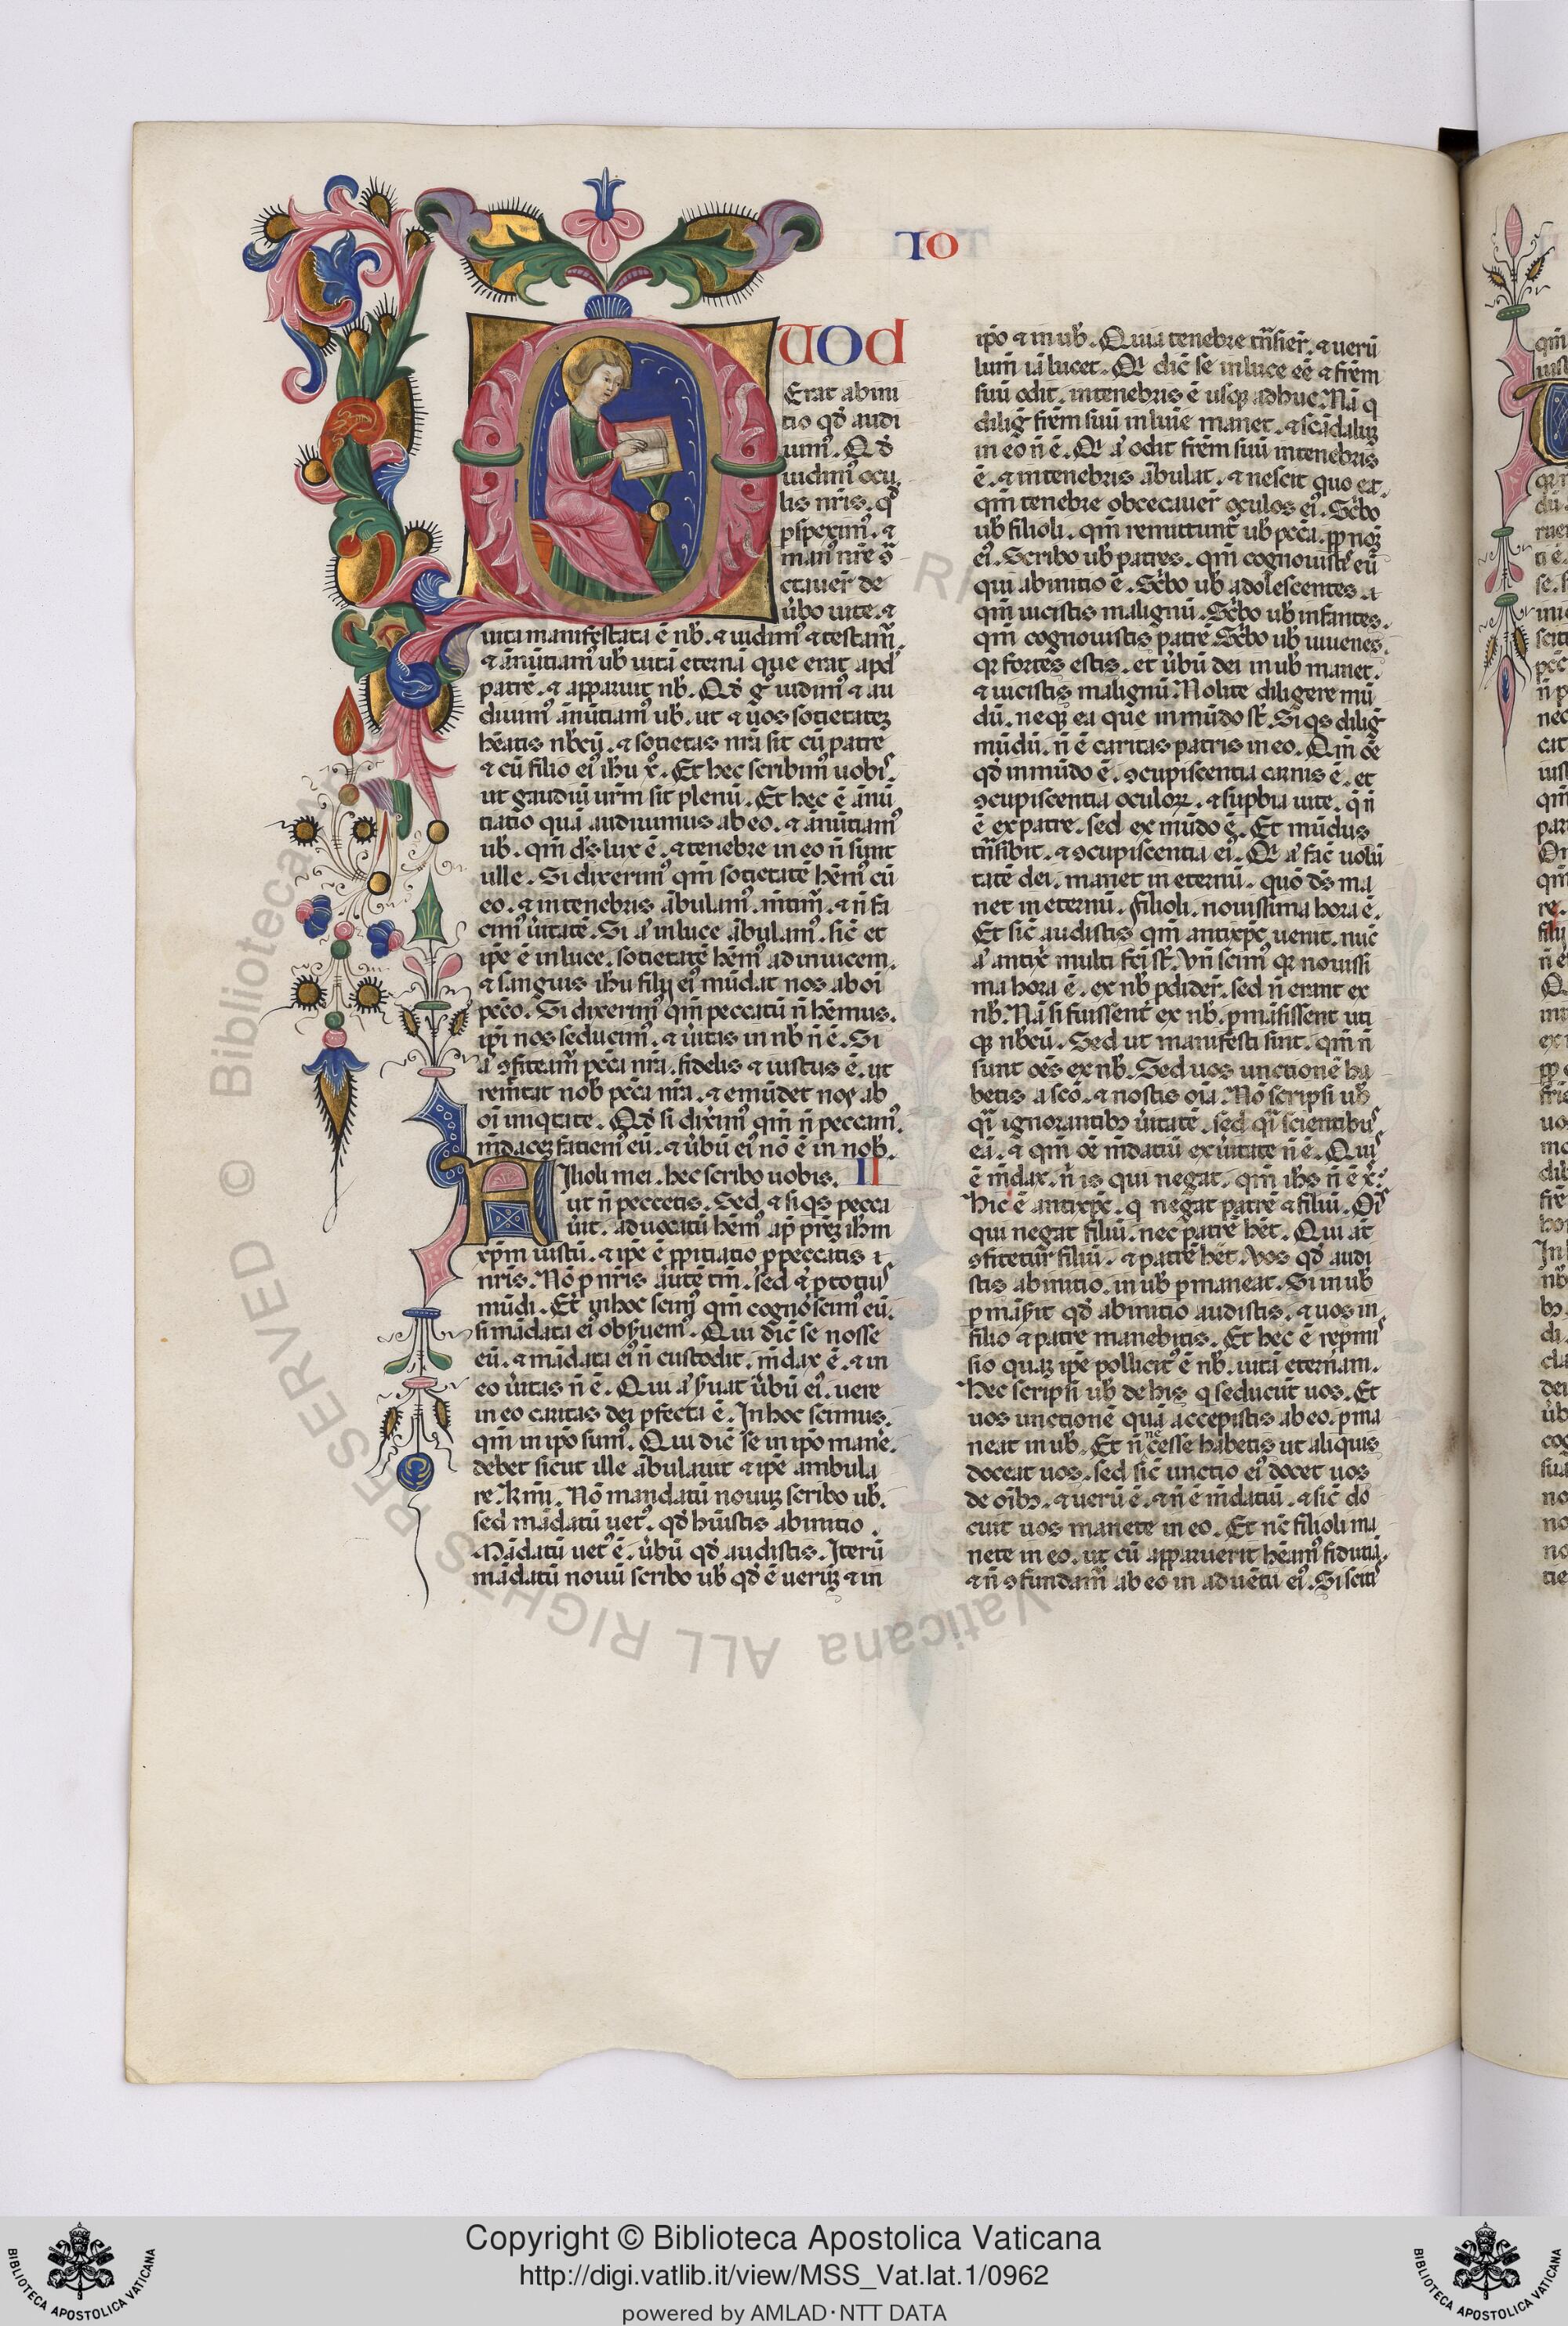 IO
QUOD
Erat abini
tio qđ audi
uimꝰ. Qđ
uidimꝰ ocu
lis nr̄is. qđ
ꝑspeximꝰ. ⁊
manꝰ nr̄e ꝯ̄
ctauer̄ de
u̇bo uite. ⁊
uita manifestata ē nƀ. ⁊ uidimꝰ ⁊ testam̄.
⁊ ānūtiamꝰ uƀ uitā eternā que erat apđ
patrē. ⁊ apparuit nƀ. Qđ g̊ uidimꝰ ⁊ au
diuimꝰ ānūtiamꝰ uƀ. ut ⁊ uos societateʒ
hēatis nƀcū. ⁊ societas nr̄a sit cū patre
⁊ cū filio eiꝰ ih̄u x̄. Et hec scribimꝰ uobis.
ut gaudiū ur̄m sit plenū. Et hec ē ānū
tiatio quā audiuimus ab eo. ⁊ ānūtiamꝰ
uƀ. qm̄ ds̄ lux ē. ⁊ tenebre in eo n̄ sunt
ulle. Si dixerimꝰ qm̄ societatē hēmꝰ cū
eo. ⁊ in tenebris ābulamꝰ. m̄tim̄. ⁊ n̄ fa
cimꝰ u̇itatē. Si a̓ in luce ābulamꝰ. sic̄ et
ip̄e ē in luce. societatē hēmꝰ ad inuicem.
⁊ sanguis ih̄u filij eiꝰ mūdat nos ab oī
pc̄c̄o. Si dixerimꝰ qm̄ peccatū n̄ hēmus.
ip̄i nos seducimꝰ. ⁊ u̇itas in nƀ n̄ ē. Si
a̓ ꝯfiteam̄ pc̄c̄a nr̄a. fidelis ⁊ iustus ē. ut
remit̄tat nob̄ pc̄c̄a nr̄a. ⁊ emūdet nos ab
oī iniqtate. Qđ si dix̓imꝰ qm̄ n̄ peccauimꝰ.
m̄daceʒ faciemꝰ eū. ⁊ u̇bū eiꝰ nō ē in nob̄.
FIlioli mei. hec scribo uobis. II
ut n̄ peccetis. Sed ⁊ si qs pecca
u̇it. aduocatū hēmꝰ ap̄ pr̄eʒ ih̄m
xp̄m iustū. ⁊ ip̄e ē ꝓpitiatio ꝓ peccatis
nr̄is. Nō ꝓ nr̄is autē tm̄. sed ⁊ ꝓ totius
mūdi. Et in hoc scimꝰ qm̄ cognoscimꝰ eū.
si mādata eiꝰ obs̓uemꝰ. Qui dic̄ se nosse
eū. ⁊ mādata eiꝰ n̄ custodit. m̄dax ē. ⁊ in
eo u̇itas n̄ ē. Qui a̓ s̓uat u̇bū eiꝰ. uere
in eo caritas dei ꝑfecta ē. In hoc scimus.
qm̄ in ip̄o sumꝰ. Qui dic̄ se in ip̄o manē.
debet sicut ille ābulauit ⁊ ip̄e ambula
re. km̄i. Nō mandatū nouuʒ scribo uƀ.
sed mādatū uetꝰ. qđ hūistis ab initio.
Mādatū uetꝰ ē u̇bū qđ audistis. Iterū
mādatū nouū scribo uƀ qđ ē ueruʒ ⁊ in
ip̄o ⁊ in uƀ. Quia tenebre tr̄nsier̄. ⁊ uerū
lum̄ iā lucet. Qi dic̄ se in luce eē ⁊ fr̄em
suū odit. in tenebris ē usqʒ adhuc. Nā q
diliḡ fr̄em suū in luīe manet. ⁊ scādaluʒ
in eo n̄ ē. Qi a̓ odit fr̄em suū in tenebris
ē. ⁊ in tenebris ābulat. ⁊ nescit quo eat.
qm̄ tenebre obcecauer̄ oculos eiꝰ. Sc̓bo
uƀ filioli. qm̄ remittunt̄ uƀ pc̄c̄a. ꝓp noʒ
eiꝰ. Scribo uƀ patres. qm̄ cognouist̄ eū
qui ab initio ē. Sc̓bo uƀ adolescentes.
qm̄ uicistis malignū. Sc̓bo uƀ infantes.
qm̄ cognouistis patrē. Sc̓bo uƀ iuuenes.
qr fortes estis. et u̇bū dei in uƀ manet.
⁊ uicistis malignū. Nolite diligere mū
dū. neqʒ ea que in mūdo st̄. Si qs diliḡ
mūdū. n̄ ē caritas patris in eo. Qm̄ oē
qđ in mūdo ē. ꝯcupiscentia carnis ē. et
ꝯcupiscentia oculoꝝ. ⁊ suꝑbia uite. q̄ n̄
ē ex patre. sed ex mūdo ē. Et mūdus
tr̄nsibit. ⁊ ꝯcupiscentia eiꝰ. Qi a̓ fac̄ uolū
tatē dei. manet in eternū. quō ds̄ ma
net in eternū. Filioli. nouissima hora ē.
Et sic̄ audistis qm̄ antixp̄c uenit. nūc
a̓ antix̄ multi fc̄i st̄. Vn̄ scimꝰ qr nouissi
ma hora ē. ex nƀ ꝓdider̄. sed n̄ erant ex
nƀ. Nā si fuissent ex nƀ. ꝑmāsissent uti
qʒ nƀcū. Sed ut manifesti sint. qm̄ n̄
sunt oēs ex nƀ. Sed uos unctionē ha
betis a sc̄o. ⁊ nostis oīa. Nō scripsi uƀ
q̄i ignorantibꝰ u̇itatē. sed q̄i scientibus
eā. ⁊ qm̄ oē m̄datiū ex u̇itate n̄ ē. Quis
ē m̄dax. n̓ is qui negat. qm̄ ih̄s n̄ ē x̄.
Hic ē antixp̄c. q negat patrē ⁊ filiū. Ois
qui negat filiū. nec patrē hēt. Qui aūt
ꝯfitetur filiū. ⁊ patrē hēt. Vos qđ audi
stis ab initio. in uƀ ꝑmaneat. Si in uƀ
ꝑmās̓it qđ ab initio audistis. ⁊ uos in
filio ⁊ patre manebitis. Et hec ē repmis
sio quaʒ ip̄e pollicitꝰ ē nƀ. uitā eternam.
Hec scripsi uƀ de his q seducūt uos. Et
uos unctionē quā accepistis ab eo. ꝑma
neat in uƀ. Et n̄ necesse habetis ut aliquis
doceat uos. sed sic̄ unctio eiꝰ docet uos
de oībꝰ. ⁊ uerū ē. ⁊ n̄ ē m̄datiū. ⁊ sic̄ do
cuit uos manete in eo. Et nc̄ filioli ma
nete in eo. ut cū apparuerit hēamꝰ fidutiā.
⁊ n̄ ꝯfundam̄ ab eo in aduētu eiꝰ. Si scitis
© Biblioteca Apostolica Vaticana ALL RIGHTS RESERVED
Copyright © Biblioteca Apostolica Vaticana
http://digi.vatlib.it/view/MSS_Vat.lat.1/0962
powered by AMLAD·NTT DATA
BIBLIOTECA APOSTOLICA VATICANA
BIBLIOTECA APOSTOLICA VATICANA